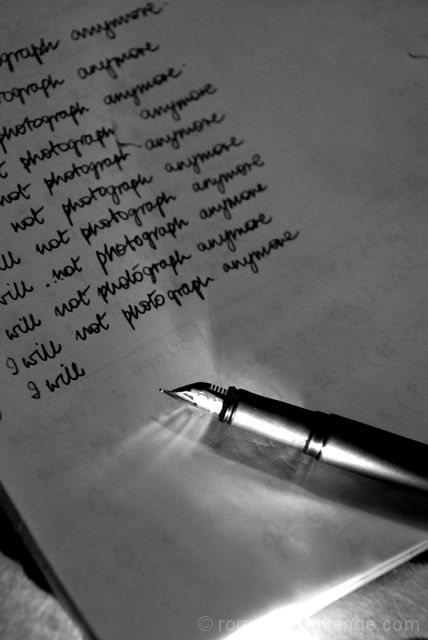 ograph anymore.
tograph anymore
photograph anymore.
t photograph anymore
not photograph anymore
not photograph anymore
ll not photograph anymore
will ..not photograph anymore
will not photograph anymore
I will not photograph anymore
I will